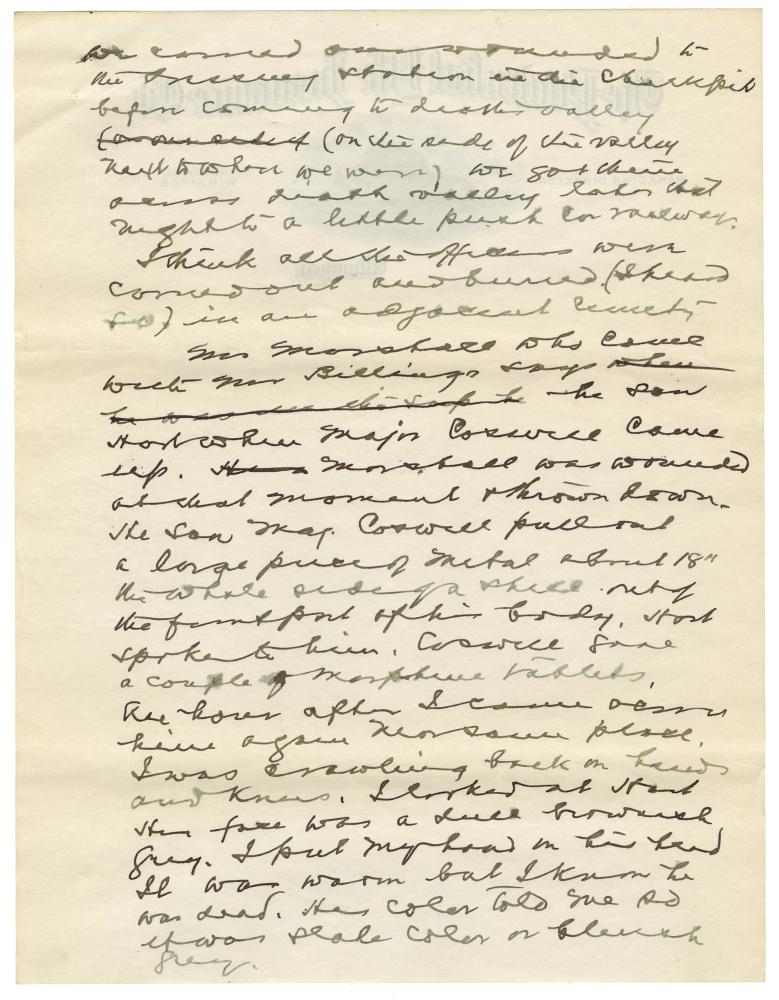 we carried our wounded to
the dressing station in the Chalk pit
before coming to deaths valley
(on our side of (on the side of the valley
next to where we were) we got them
across death valley later that
night to a little push car railway.
I think all the officers were
carried out and buried (I heard
so) in an adjacent cemetery
Mr Marshall who came
with Mr Billings says when
he was he saw
Hart when Major Coswell came
up. Marshall was wounded
at that moment & thrown down.
He saw Maj. Coswell pull out
a large piece of metal about 18"
the whole side of a shell out of
the front part of his body. Hart
spoke to him. Coswell gave
a couple of Morphine tablets.
An hour after I came across
him again near same place.
I was crawling back on hands
and knees. I looked at Hart
His face was a dull brownish
grey. I put my hand on his head
It was warm but I know he
was dead. His color told me so
it was slate color or blueish
grey.